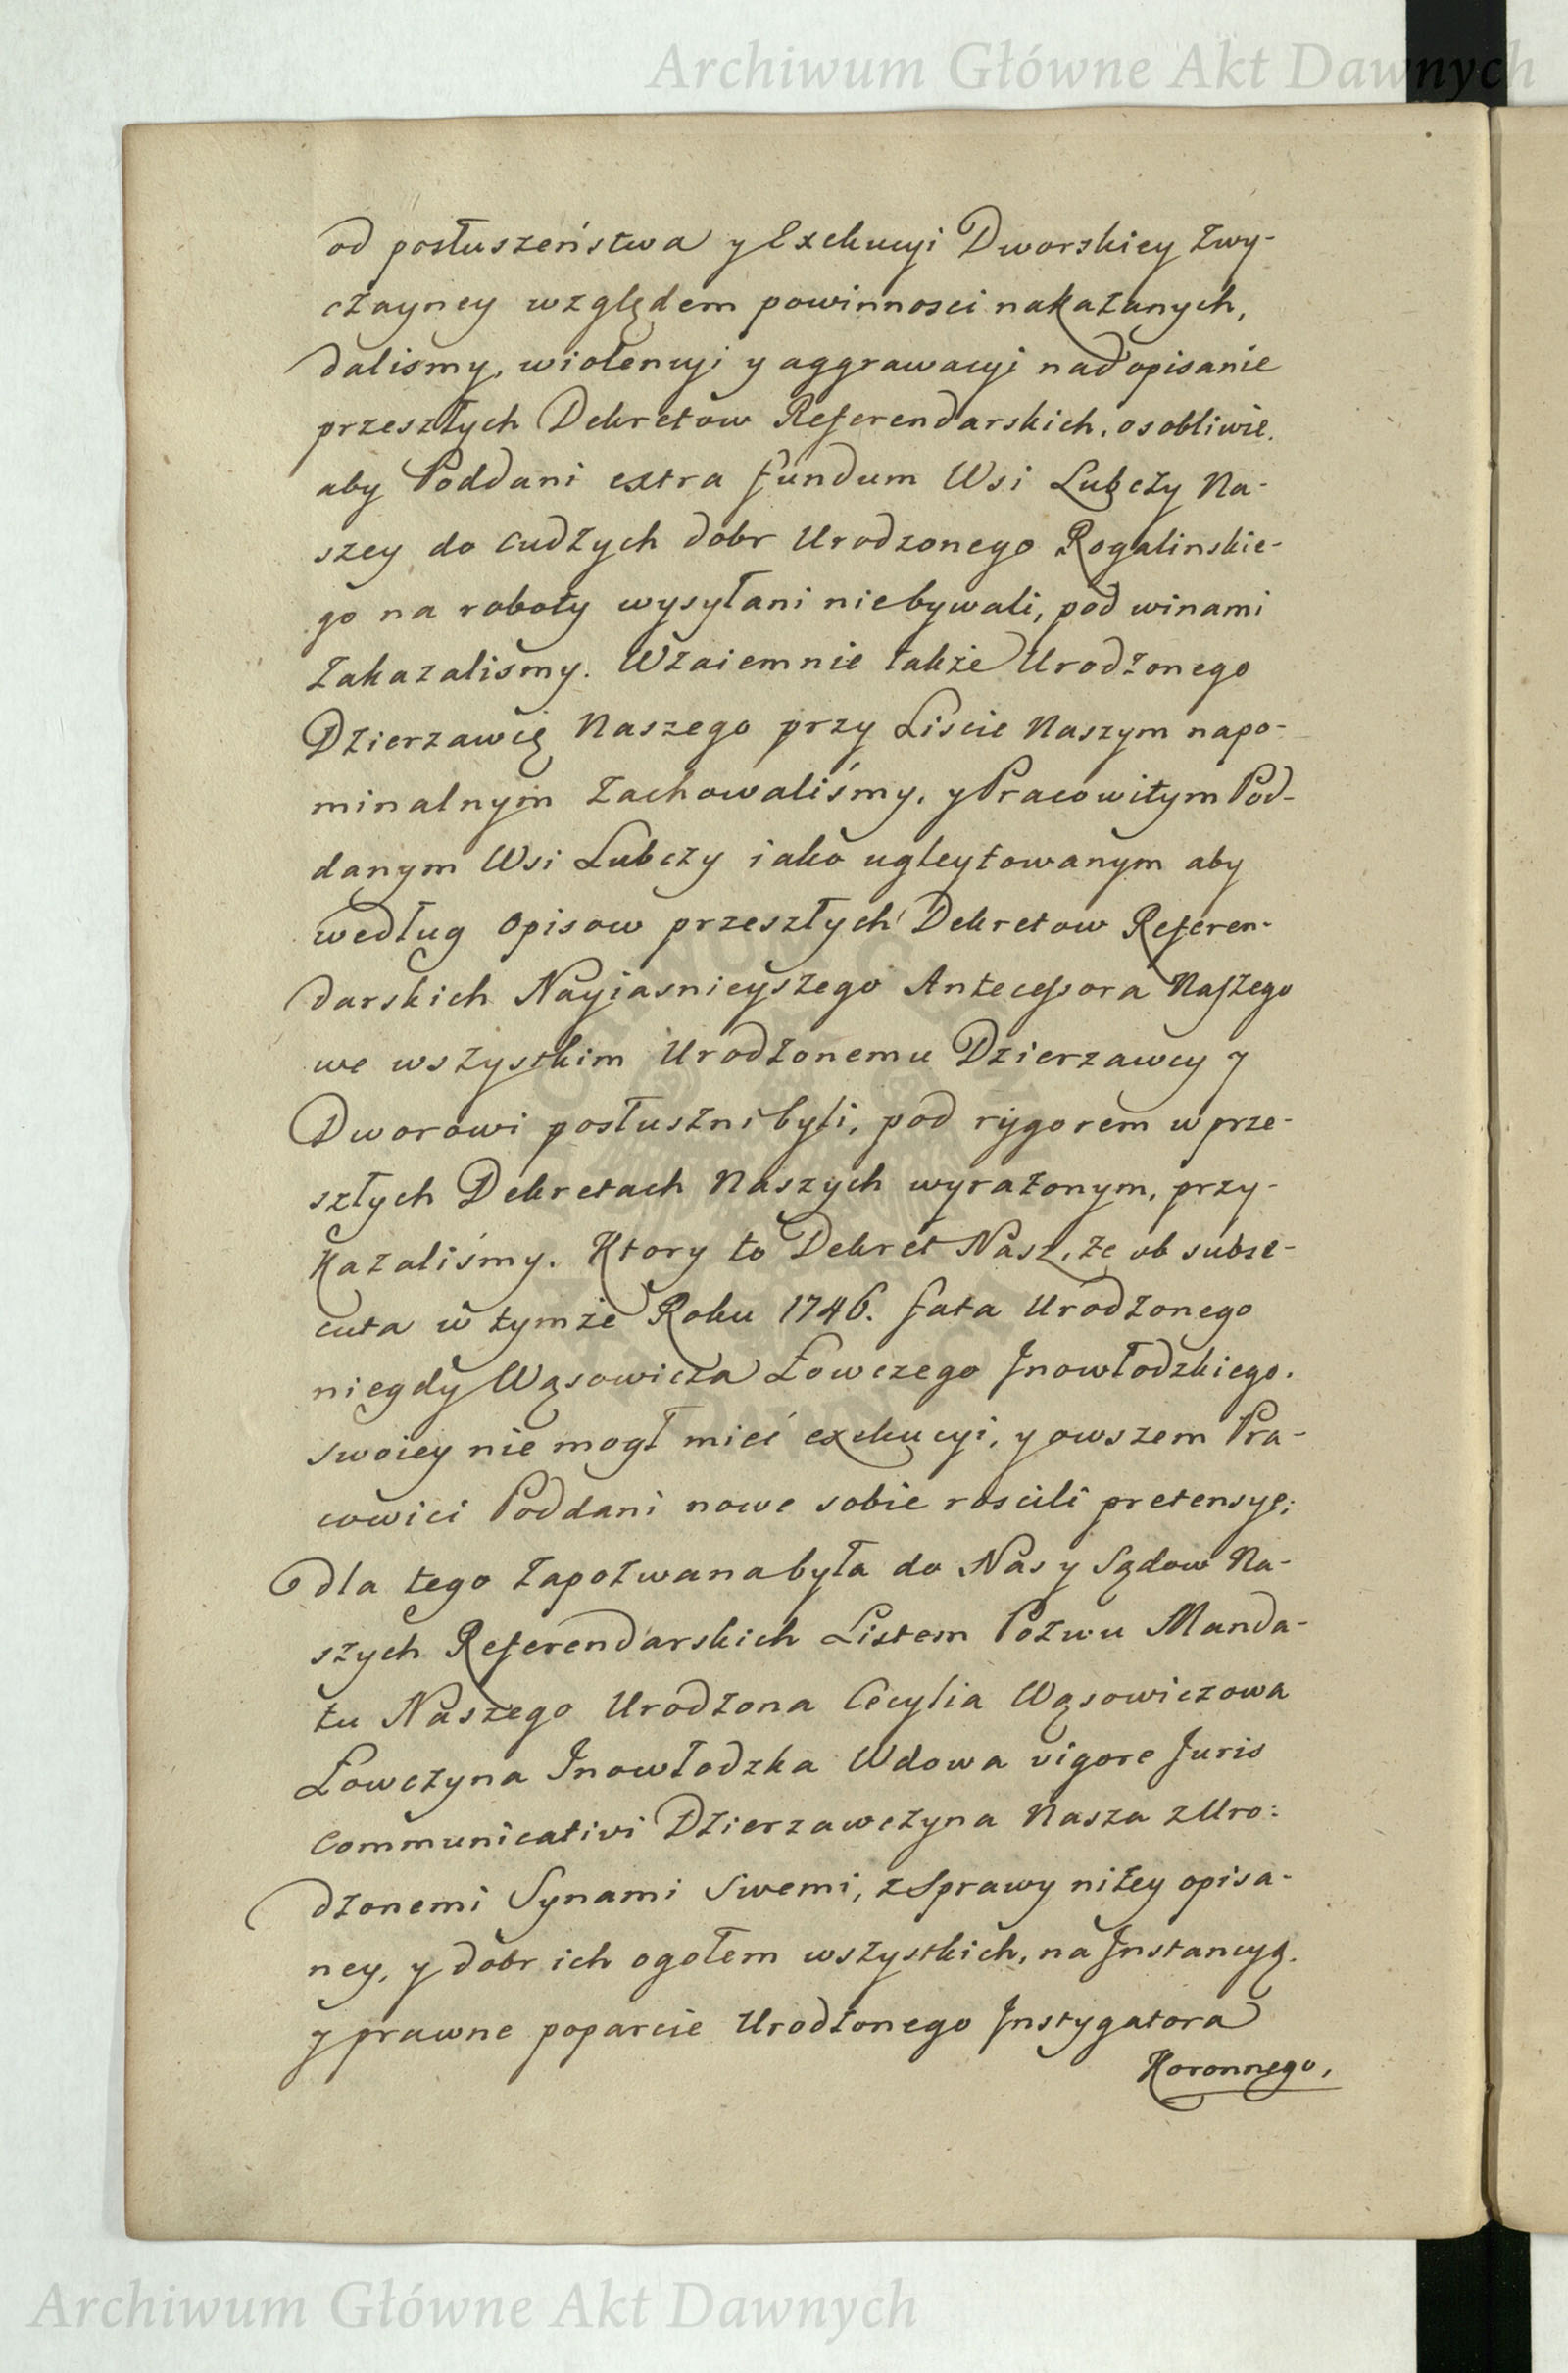 Archiwum Główne Akt Dawnych
od posłuszeństwa y Exekucyi Dworskiey zwy-
czayney względem powinnosci nakazanych,
dalismy, wiolencyi y aggrawacyi nad opisanie
przeszłych Dekretow Referendarskich, osobliwie.
aby Poddani extra fundum Wsi Lubczy Na-
szey do cudzych dobr Urodzonego Rogalinskie-
go na roboty wysyłani niebywali, pod winami
zakazalismy. Wzaiemnie także Urodzonego
Dzierzawcę Naszego przy Liscie Naszym napo-
minalnym zachowaliśmy, y Pracowitym Pod-
danym Wsi Lubczy iako ugleytowanym aby
według Opisow przeszłych Dekretow Referen-
darskich Nayiasnieyszego Antecessora Naszego
we wszystkim Urodzonemu Dzierzawcy y
Dworowi posłuszni byli, pod rygorem w prze-
szłych Dekretach Naszych wyrażonym, przy-
kazaliśmy. Ktory to Dekret Nasz, że ob subse-
cuta w tymże Roku 1746. fata Urodzonego
niegdy Wąsowicza Łowczego Inowłodzkiego.
swoiey nie mogł mieć exekucyi, y owszem Pra-
cowici Poddani nowe sobie roscili pretensye;
dla tego zapozwana była do Nas y Sądow Na-
szych Referendarskich Listem Pozwu Manda-
tu Naszego Urodzona Cecylia Wąsowiczowa
Łowczyna Inowłodzka Wdowa vigore Juris
Communicativi Dzierzawczyna Nasza z Uro:
dzonemi Synami Swemi, z Sprawy niżey opisa-
ney, y dobr ich ogołem wszystkich, na Instancyą.
y prawne poparcie Urodzonego Instygatora
Koronnego,
Archiwum Główne Akt Dawnych